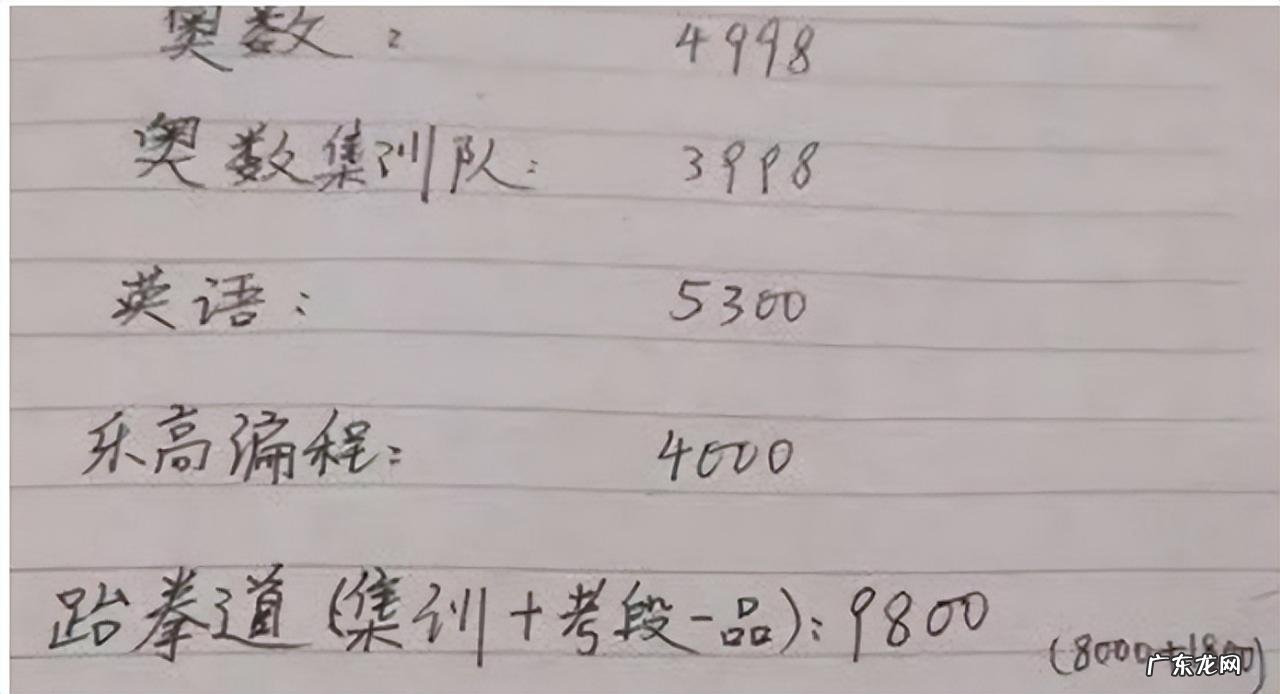 奥数： 4998
奥数集训队： 3998
英语： 5300
乐高编程： 4000
跆拳道（集训+考段一品）：9800
（8000+1800）
广东龙网